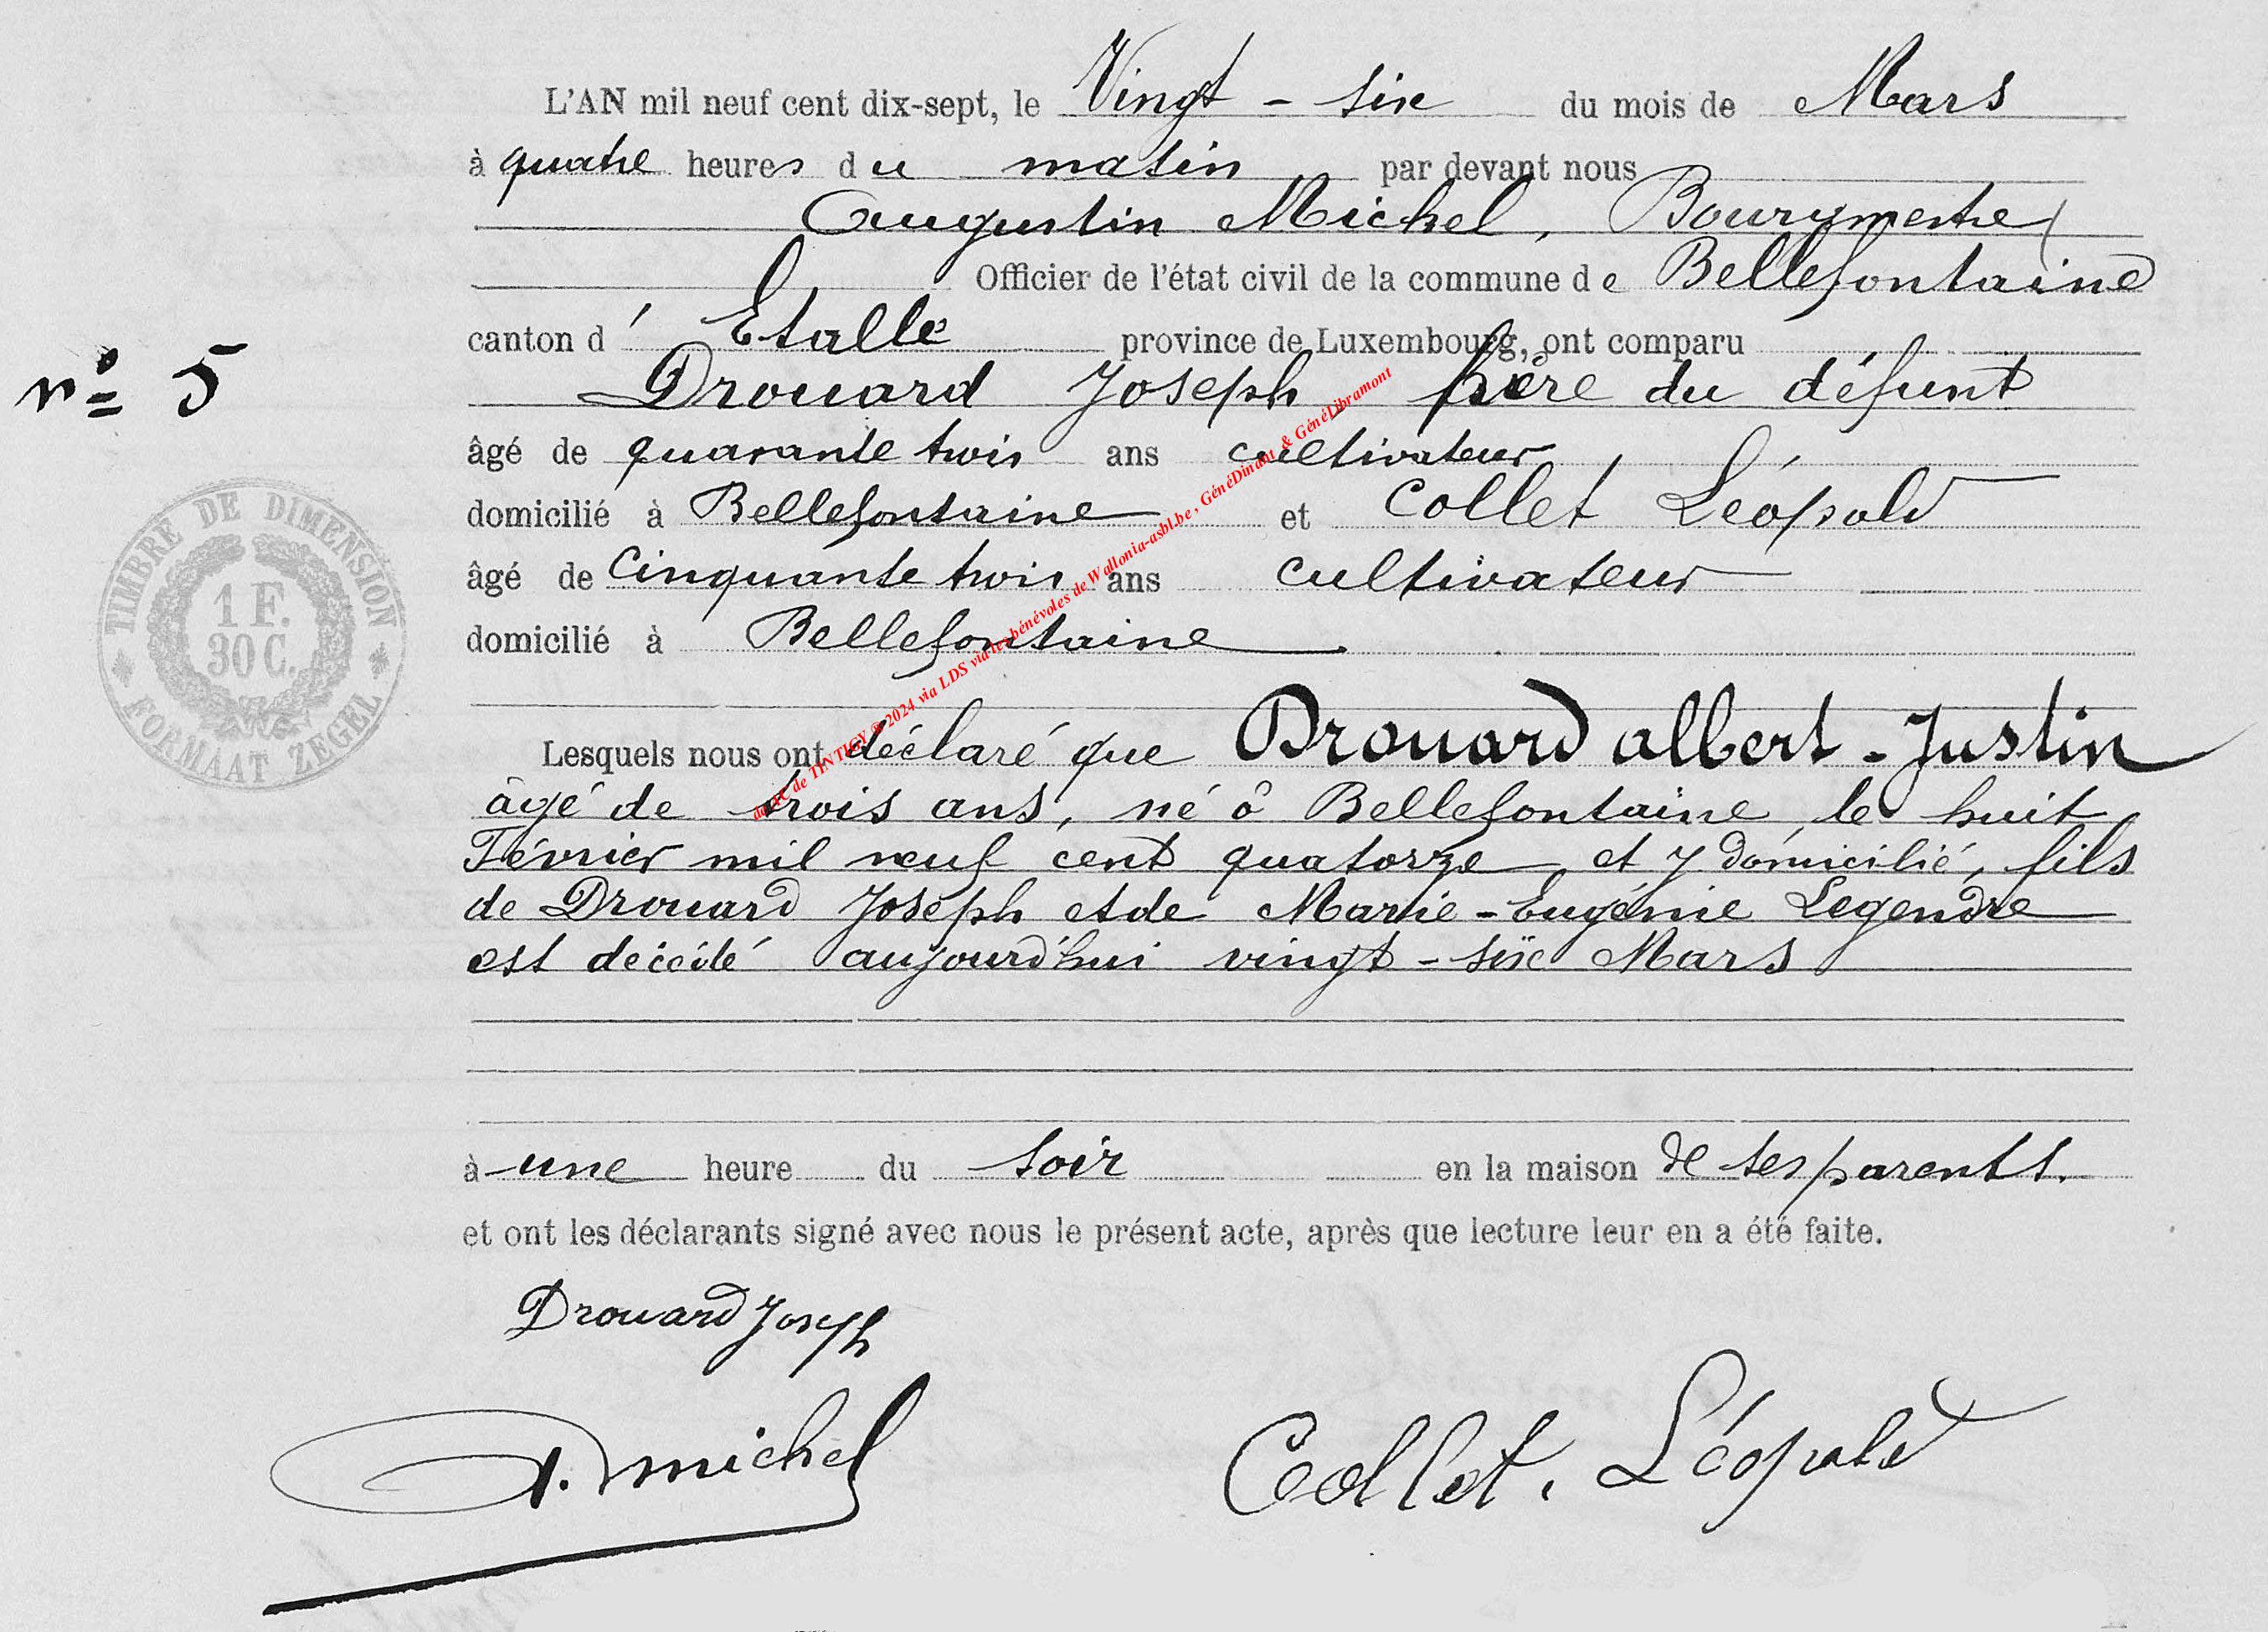 L'AN mil neuf cent dix-sept, le Vingt-six du mois de Mars
à quatre heures du matin par devant nous
Augustin Michel, Bourgmestre
Officier de l'état civil de la commune de Bellefontaine
canton d'Etalle province de Luxembourg, ont comparu
n° 5
Drouard Joseph père du défunt
âgé de quarante trois ans cultivateur
domicilié à Bellefontaine et Collet Léopold
âgé de Cinquante trois ans cultivateur
domicilié à Bellefontaine
TIMBRE DE DIMENSION
1 F.
30 C.
FORMAAT ZEGEL
du AC de TINTIGY © 2024 via LDS via les bénévoles de Wallonia-asbl.be, GénéDinant & GénéLibramont
Lesquels nous ont déclaré que Drouard albert-Justin
âgé de trois ans, né à Bellefontaine, le huit
Février mil neuf cent quatorze et y domicilié, fils
de Drouard Joseph et de Marie-Eugénie Legendre
est décédé aujourd'hui vingt-six Mars
à une heure du soir en la maison de ses parents.
et ont les déclarants signé avec nous le présent acte, après que lecture leur en a été faite.
Drouard Joseph
A. Michel
Collet. Léopold